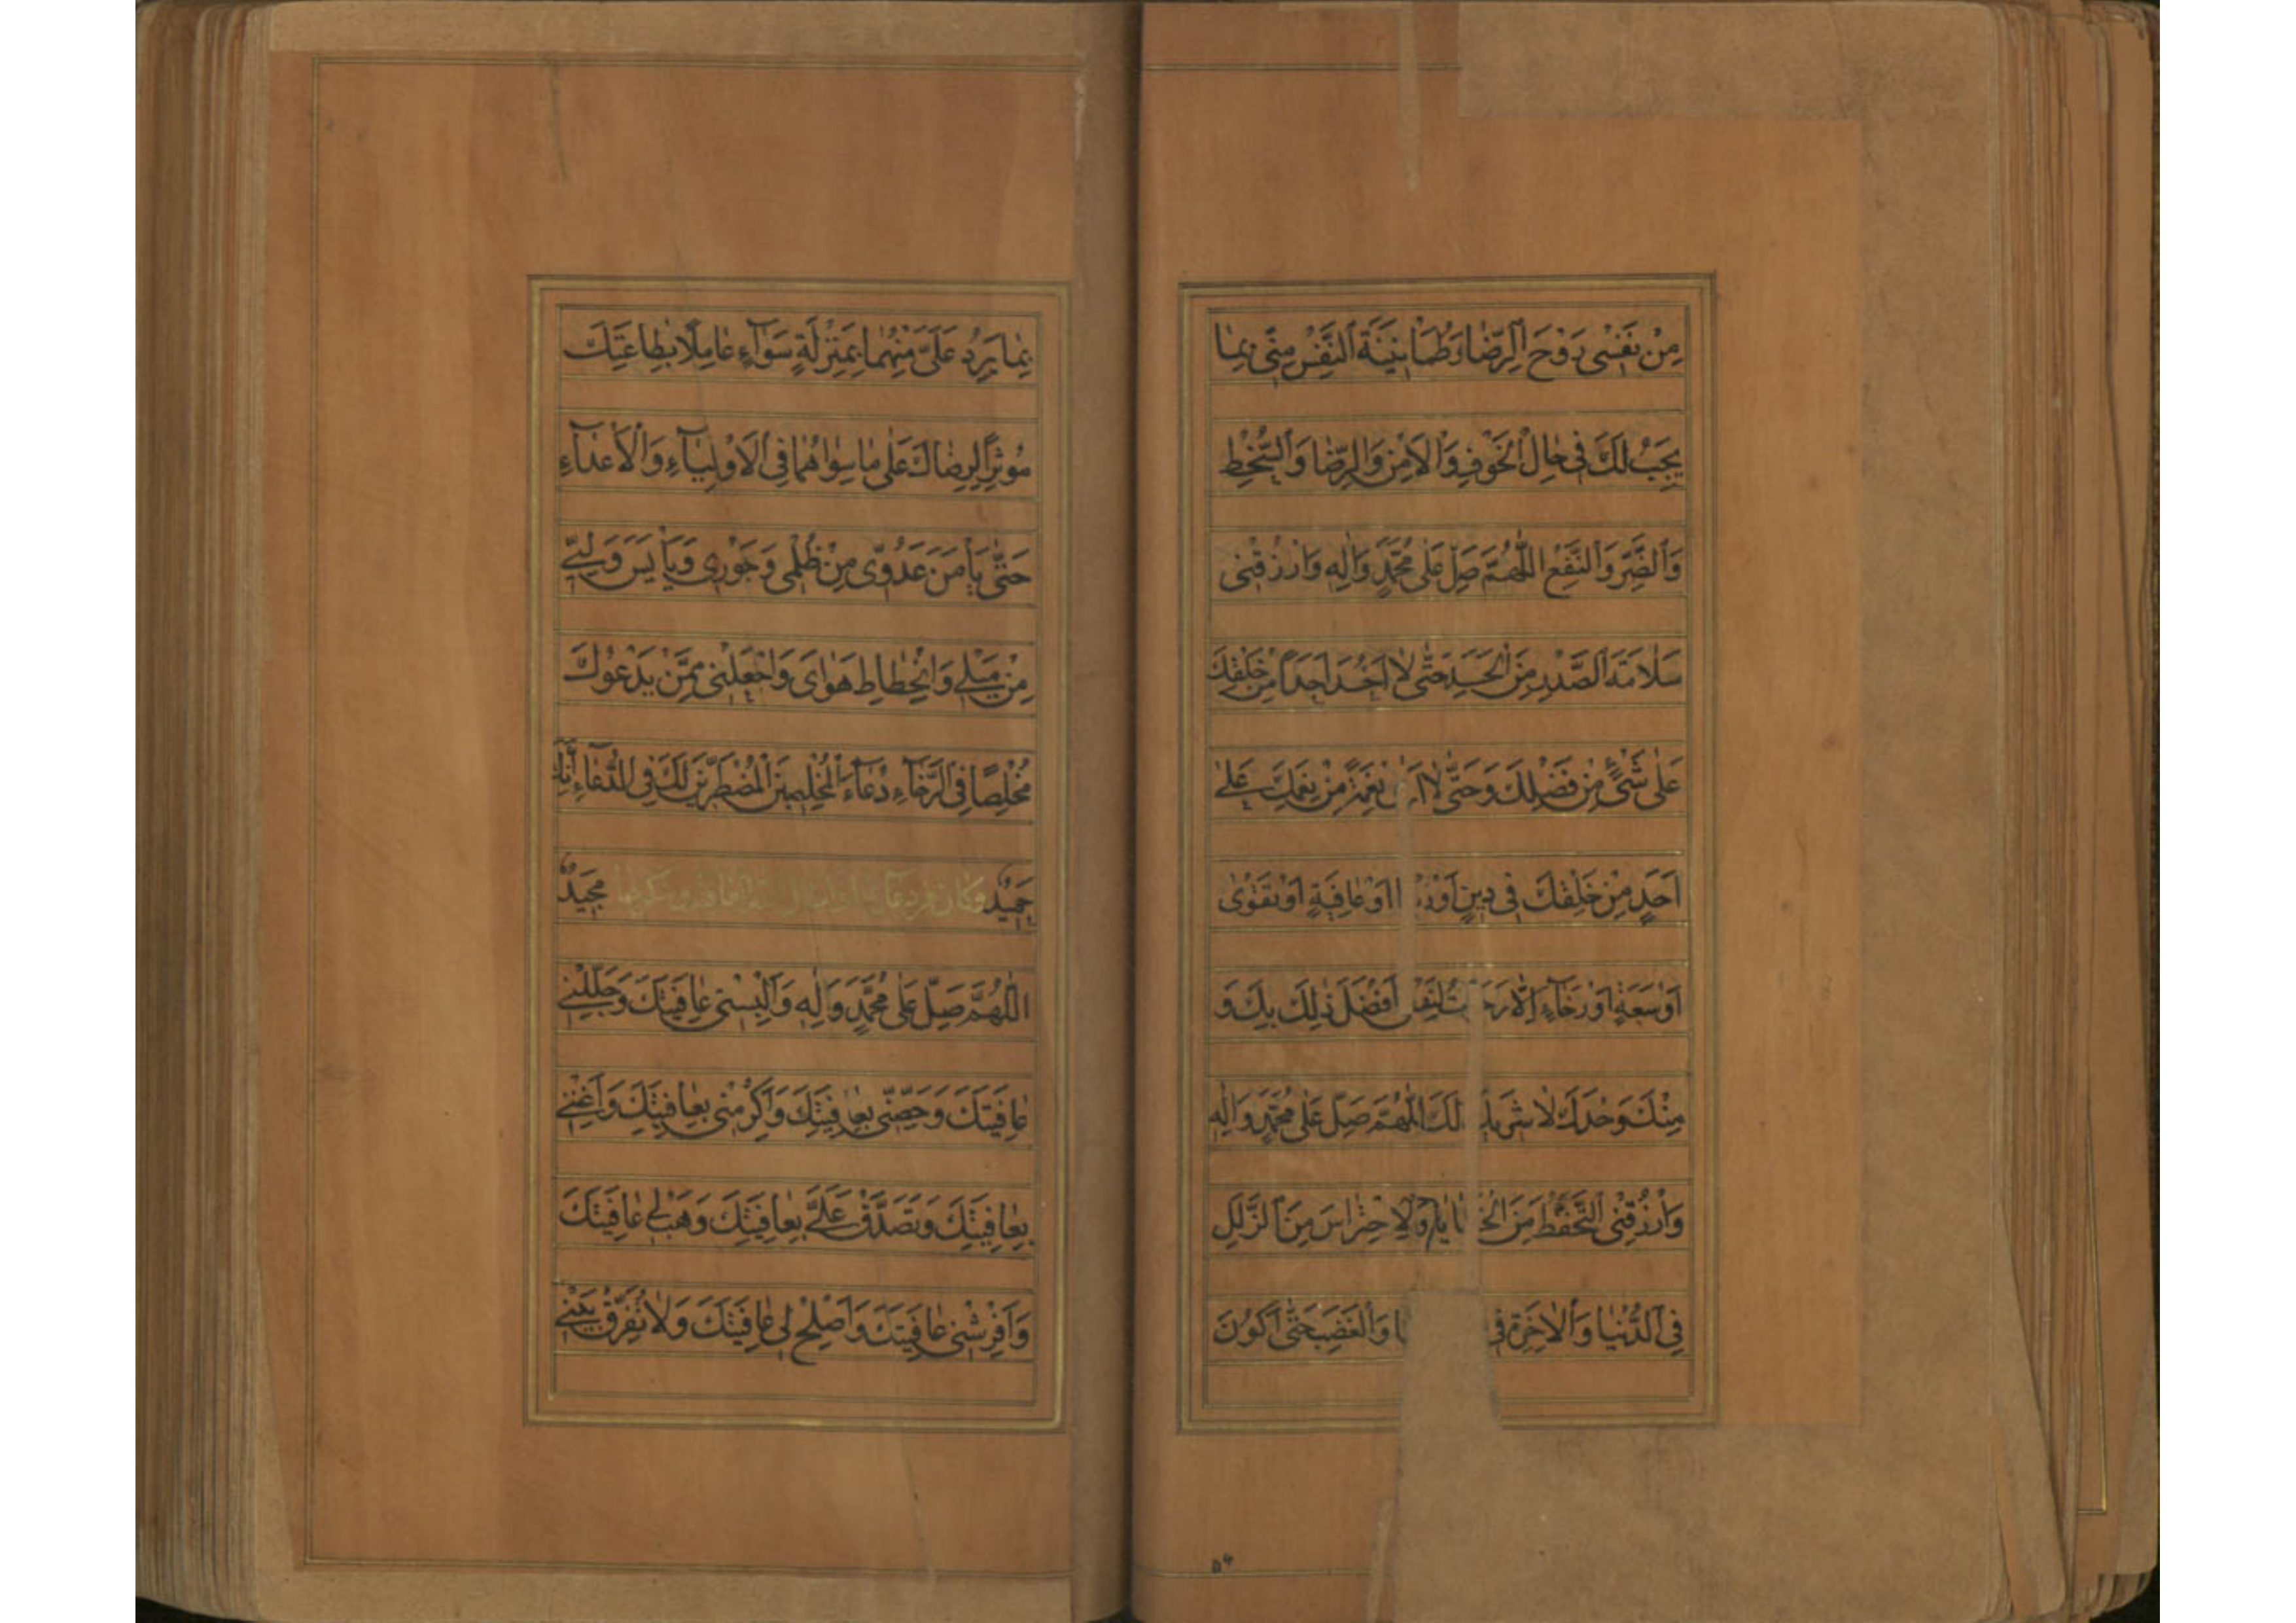 مِنْ نَفْسی رَوْحَ الرِّضا وَطُمَاْنینَةَ النَّفْسِ مِنّی بِما
یَجِبُ لَكَ فی حالِ الْخَوْفِ وَالْاَمْنِ وَالرِّضا وَالسُّخْطِ
وَالضَّرِّ وَالنَّفْعِ اللّٰهُمَّ صَلِّ عَلٰی مُحَمَّدٍ وَاٰلِهِ وَارْزُقْنی
سَلامَةَ الصَّدْرِ مِنَ الْحَسَدِ حَتّٰی لا اَحْسُدَ اَحَداً مِنْ خَلْقِكَ
عَلٰی شَیْءٍ مِنْ فَضْلِكَ وَحَتّٰی لا نِعْمَةً مِنْ نِعَمِكَ عَلٰی
اَحَدٍ مِنْ خَلْقِكَ فی دینٍ اَوْ اَوْ عافِیَةٍ اَوْ تَقْوٰی
اَوْ سَعَةٍ اَوْ رَخآءٍ اِلّا لِنَفْسی اَفْضَلَ ذٰلِكَ بِكَ وَ
مِنْكَ وَحْدَكَ لا شَریكَ لَكَ اللّٰهُمَّ صَلِّ عَلٰی مُحَمَّدٍ وَاٰلِهِ
وَارْزُقْنِی التَّحَفُّظَ مِنَ الْخَطایا وَالْاِحْتِراسَ مِنَ الزَّلَلِ
فِی الدُّنْیا وَالْاٰخِرَةِ فی وَالْغَضَبِ حَتّٰی اَكُونَ
بِما یَرِدُ عَلَیَّ مِنْهُما بِمَنْزِلَةٍ سَوآءٍ عامِلًا بِطاعَتِكَ
مُوثِراً لِرِضاكَ عَلٰی ما سِواهُما فِی الْاَوْلِیآءِ وَالْاَعْدآءِ
حَتّٰی یَاْمَنَ عَدُوّی مِنْ ظُلْمی وَجَوْری وَیَاْیَسَ وَلِیّی
مِنْ مَیْلی وَانْحِطاطِ هَوایَ وَاجْعَلْنی مِمَّنْ یَدْعُوكَ
مُخْلِصًا فِی الرَّخآءِ دُعآءَ الْمُخْلِصینَ الْمُضْطَرّینَ لَكَ فِی الدُّعآءِ اِنَّكَ
حَمیدٌ مَجیدٌ
اللّٰهُمَّ صَلِّ عَلٰی مُحَمَّدٍ وَاٰلِهِ وَاَلْبِسْنی عافِیَتَكَ وَجَلِّلْنی
عافِیَتَكَ وَحَصِّنّی بِعافِیَتِكَ وَاَكْرِمْنی بِعافِیَتِكَ وَاَغْنِنی
بِعافِیَتِكَ وَتَصَدَّقْ عَلَیَّ بِعافِیَتِكَ وَهَبْ لی عافِیَتَكَ
وَاَفْرِشْنی عافِیَتَكَ وَاَصْلِحْ لی عافِیَتَكَ وَلا تُفَرِّقْ بَیْنی